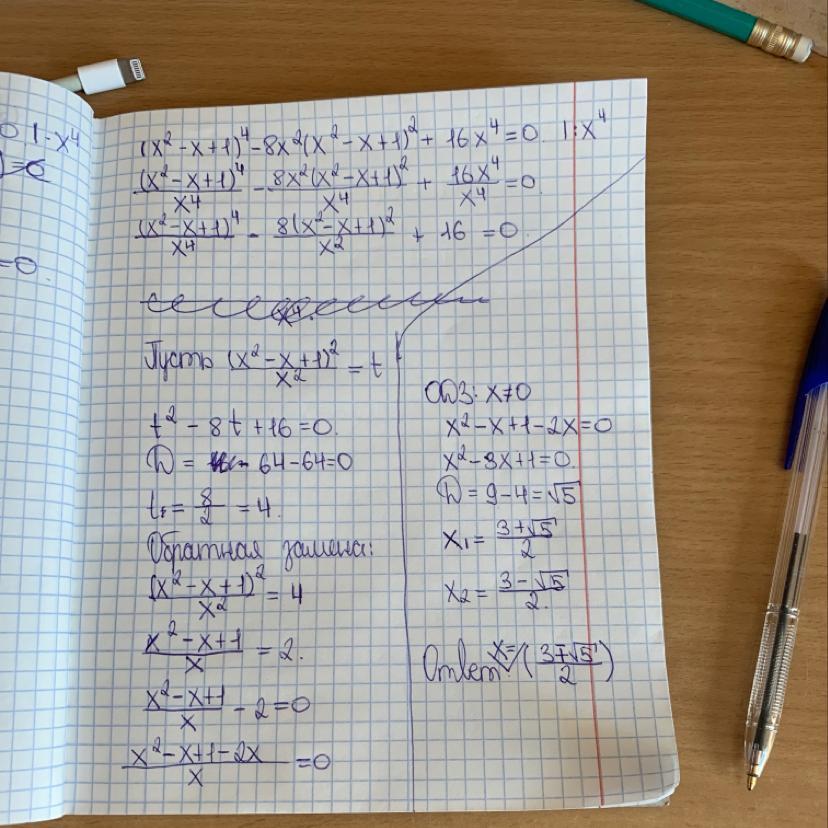 0 | · x⁴
) = 0
= 0
(x² - x + 1)⁴ - 8x²(x² - x + 1)² + 16x⁴ = 0 | : x⁴
(x² - x + 1)⁴/x⁴ - 8x²(x² - x + 1)²/x⁴ + 16x⁴/x⁴ = 0
(x² - x + 1)⁴/x⁴ - 8(x² - x + 1)²/x² + 16 = 0
Пусть (x² - x + 1)²/x² = t
t² - 8t + 16 = 0.
D = 64 - 64 = 0
t₁ = 8/2 = 4.
Обратная замена:
(x² - x + 1)²/x² = 4
x² - x + 1/x = 2.
x² - x + 1/x - 2 = 0
x² - x + 1 - 2x/x = 0
ОДЗ: x ≠ 0
x² - x + 1 - 2x = 0
x² - 3x + 1 = 0.
D = 9 - 4 = √5
x₁ = 3 + √5/2
x₂ = 3 - √5/2.
Ответ: x = (3 ∓ √5/2)